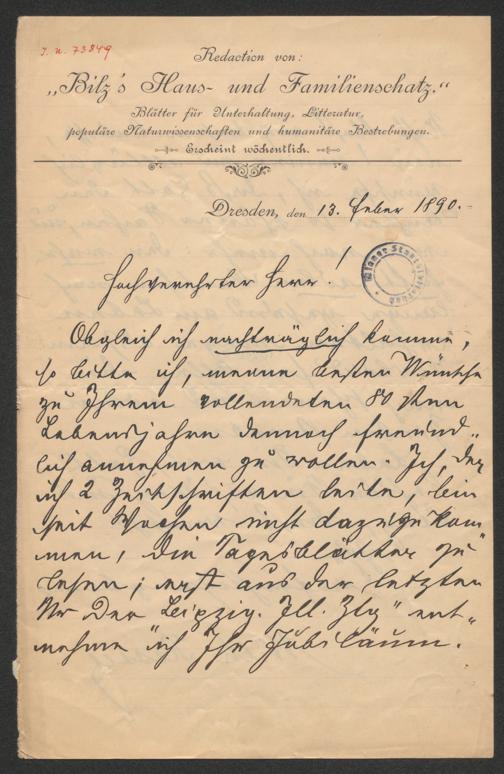 J. N. 73849
Redaction von:
„Bilz's Haus- und Familienschatz,“
Blätter für Unterhaltung, Litteratur,
populäre Naturwissenschaften und humanitäre Bestrebungen.
Erscheint wöchentlich.
Dresden, den 13. Feber 1890.
Hochverehrter Herr!
Obgleich ich nachträglich komme,
so bitte ich, meine besten Wünsche
zu Ihrem vollendeten 80sten
Lebensjahre dennoch freund„
lich annehmen zu wollen. Ich, der
ich 2 Zeitschriften leite, bin
seit Wochen nicht dazu gekom
men, die Tagesblätter zu
lesen; erst aus der letzten
Nr der „Leipzig. Ill. Ztg“ ent„
nehme ich Ihr Jubiläum.